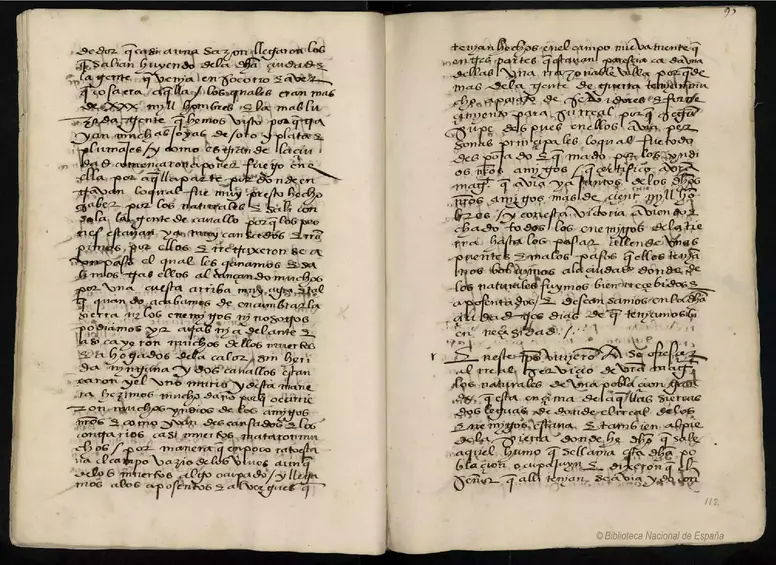 dedor q̃ casi a una sazon llegaron los
q̃ salian huyendo dela dha çiudad e
la gente q̃ venia en socorro e a ver
q̃ cosa era aq̃lla / los quales eran mas
de XXX mill hombres e la mas lu
zida gente q̃ hemos visto porq̃ tra
yan muchas joyas de oro y plata e
plumajes / y como es grande la çiu
dad comenzaron a poner fuego en e
lla por aquella parte por donde en
travan lo qual fue muy presto hecho
saber por los naturales e sali con
sola la gente de cavallo porq̃ los peo
nes estavan ya muy cansados e ron
pimos por ellos e retruxeron se a
un paso el qual les ganamos e sa
limos tras ellos alcançando muchos
por una cuesta arriba muy agra e tal
q̃ quando acabamos de encumbrar la
sierra ni los enemigos ni nosotros
podiamos yr atras ni adelante e
asi cayeron muchos dellos muertos
e ahogados dela calor sin heri
da ninguna y dos cavallos estan
caron y el uno murio y desta mane
ra hezimos mucho daño porq̃ ocurrie
ron muchos yndios de los amigos
nrõs e como yvan descansados e los
contrarios casi muertos mataron mu
chos / por manera q̃ en poco rato esta
va el campo vazio delos vivos aunq̃
delos muertos algo ocupado / y llega
mos alos aposentos e alvergues q̃
tenian hechos en el campo nuevamente q̃
en tres partes q̃ estavan pareçia cada una
dellas una razonable villa porq̃ de
mas dela gente de guerra tenian mu
cho aparato de servidores e forne
cimiento para su real porq̃ segun
supe despues en ellos avia per
sonas prinçipales lo qual fue todo
despojado e quemado por los yndi
os nrõs amigos / q̃ çertifico a vrã
mag. q̃ avia ya juntos de los dhos
nrõs amigos mas de çient mill ho
bres / y con esta victoria aviendo e
chado todos los enemigos dela tie
rra hasta los pasar allende unas
puentes e malos pasos q̃ ellos tenia
nos bolvimos ala çiudad donde de
los naturales fuymos bien reçebidos e
aposentados / e descansamos en la dha
çiudad tres dias de q̃ teniamos bi
en neçesidad /.
En este tpo vinieron a se ofreçer
al real serviçio de vrã mag.
los naturales de una poblaçion gran
de q̃ esta ençima de aquellas sierras
dos leguas de donde el real de los
enemigos estava e tambien al pie
dela sierra donde he dho q̃ sale
aquel humo q̃ se llama esta dha po
blaçion ocupatuyo e dixeron q̃ el
señor q̃ alli tenian se avia ydo con
112
© Biblioteca Nacional de España